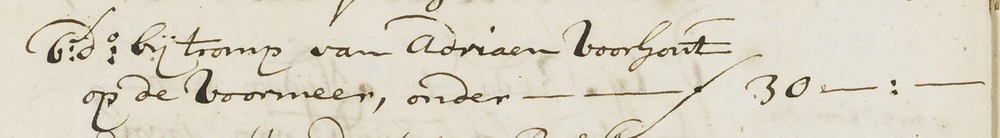 6: d.o bij tromp van Adriaen Voorhout
op de Voormeer, onder — — ƒ 30 — : —